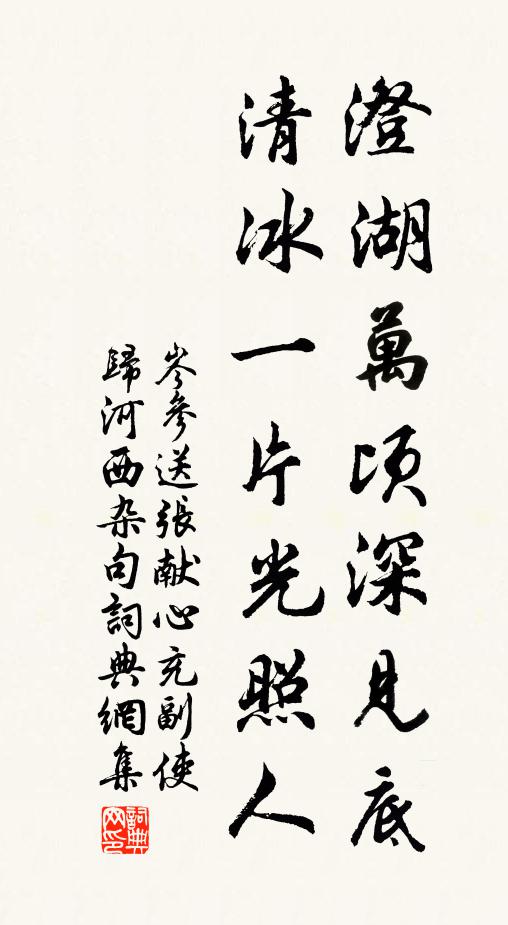 澄湖萬頃深見底
清冰一片光照人
岑參送張献心充副使
歸河西杂句詞典網集
詞典网印